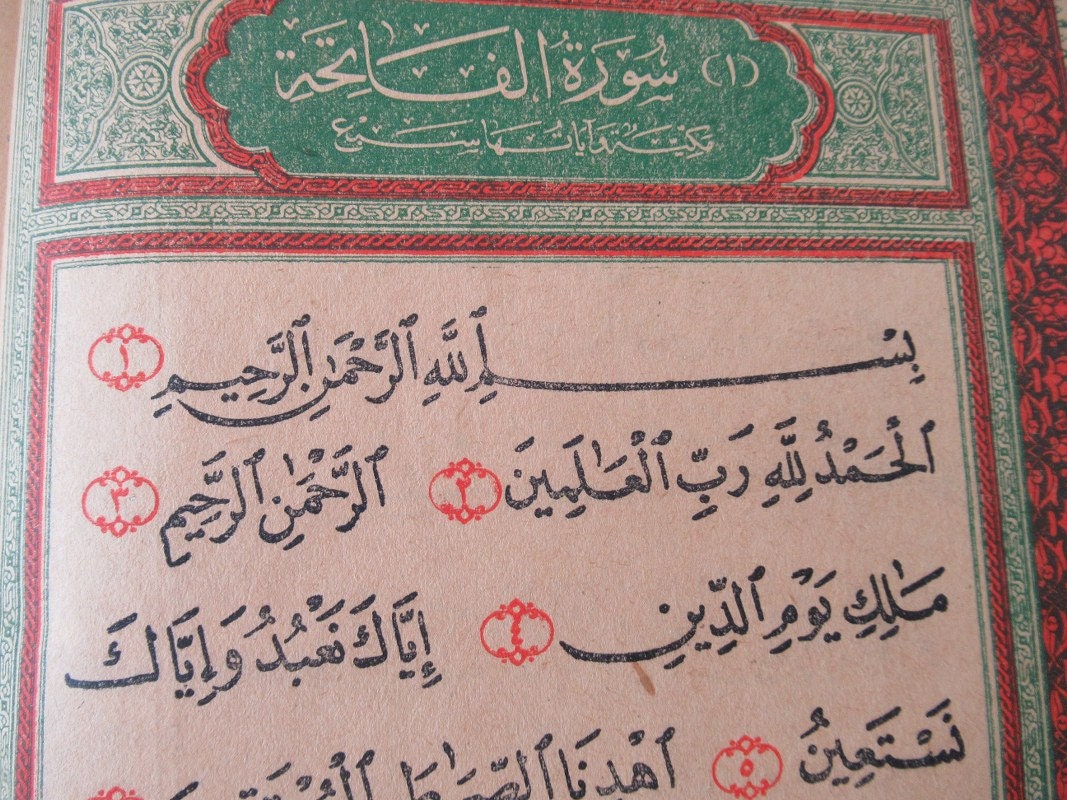 (١) سُورَةُ الفَاتِحَةِ
مَكِّيَّة وَآيَاتُهَا سَبْع
بِسْمِ ٱللَّهِ ٱلرَّحْمَٰنِ ٱلرَّحِيمِ ١
ٱلْحَمْدُ لِلَّهِ رَبِّ ٱلْعَٰلَمِينَ ٢ ٱلرَّحْمَٰنِ ٱلرَّحِيمِ ٣
مَٰلِكِ يَوْمِ ٱلدِّينِ ٤ إِيَّاكَ نَعْبُدُ وَإِيَّاكَ
نَسْتَعِينُ ٥ ٱهْدِنَا ٱلصِّرَٰطَ